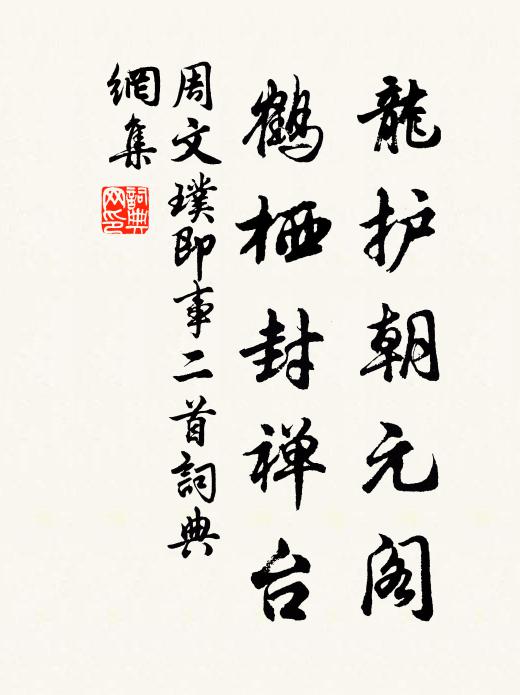 龍护朝元阁
鶴栖封禅台
周文璞即事二首詞典
網集
詞典网印